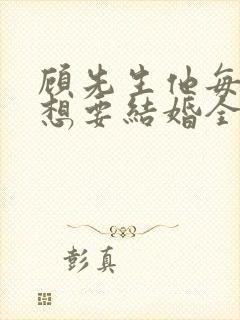 顾先生他每
想要結婚全
彭真